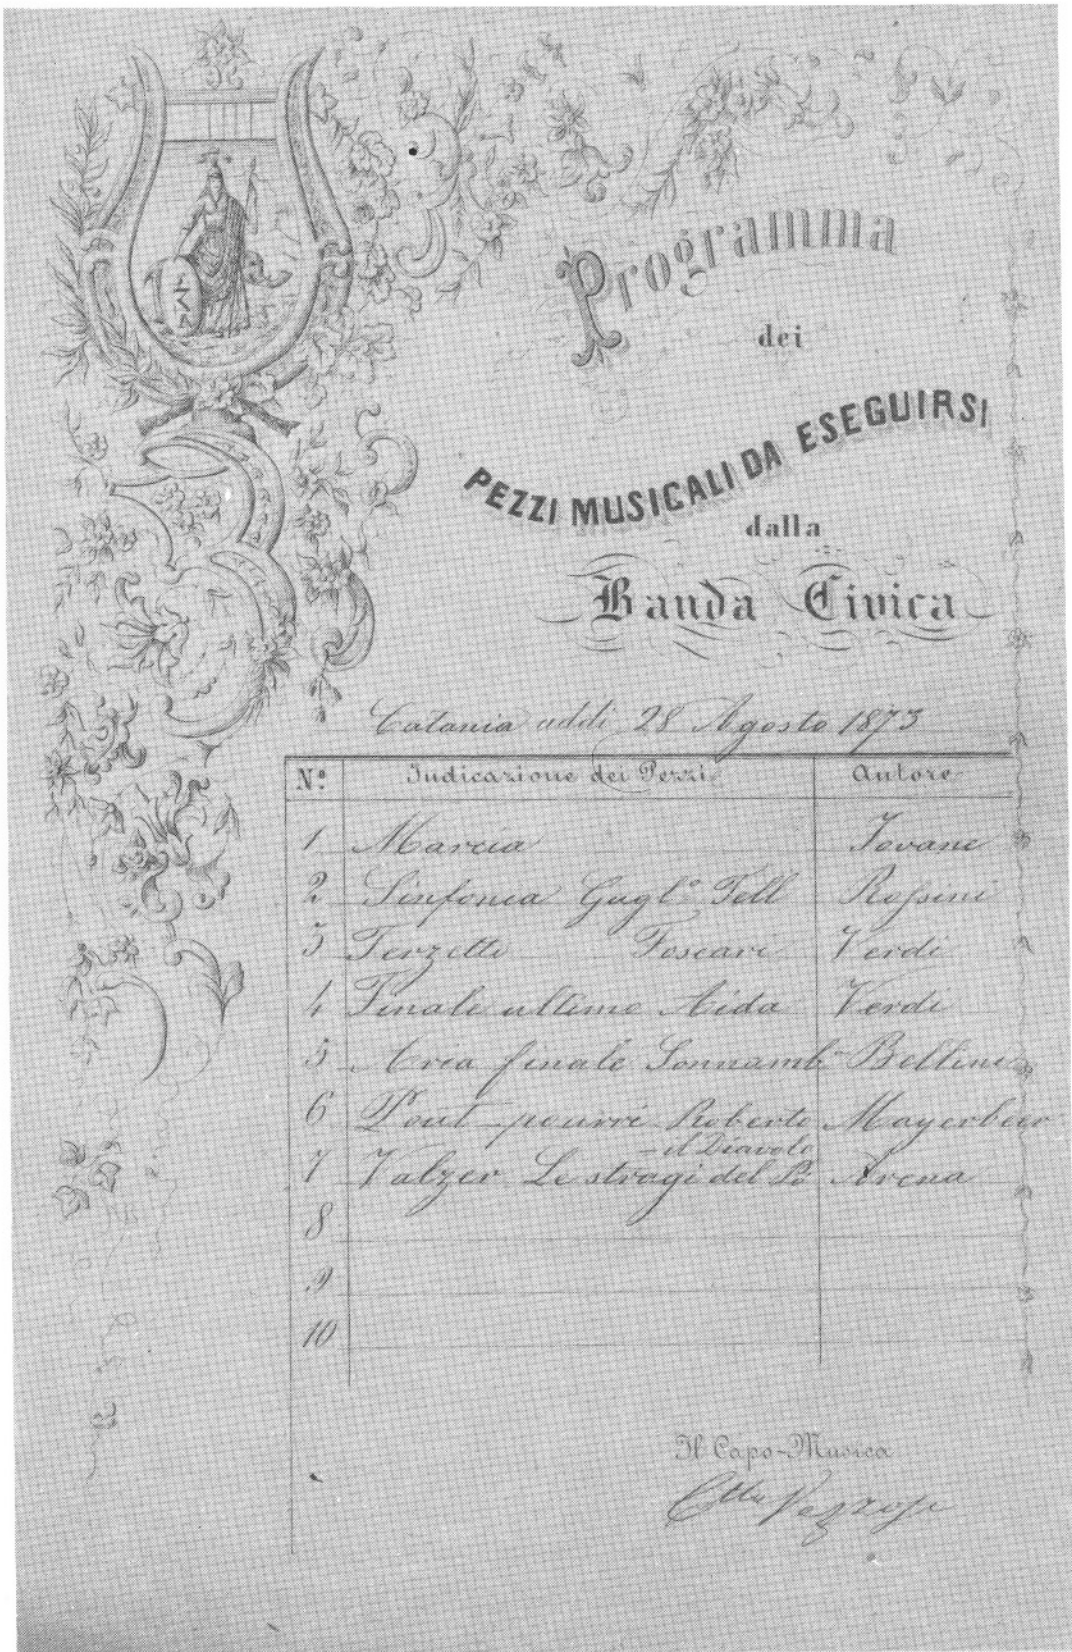 Programma
dei
PEZZI MUSICALI DA ESEGUIRSI
dalla
Banda Civica
Catania addì 28 Agosto 1873
N.º Indicazione dei Pezzi Autore
1 Marcia Jovane
2 Sinfonia Gugl.º Tell Rossini
3 Terzetto Foscari Verdi
4 Finale ultimo Aida Verdi
5 Aria finale Sonnamb.ª Bellini
6 Pout-pourri Roberto Mayerbeer
il Diavolo
7 Valzer Le stragi del Pò Arena
8
9
10
Il Capo-Musica